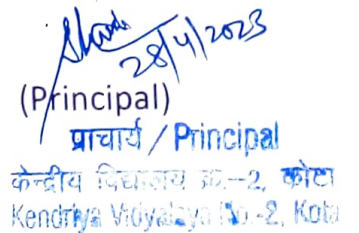 28/4/2023
(Principal)
प्राचार्य / Principal
केन्द्रीय विद्यालय क्र.-2, कोटा
Kendriya Vidyalaya No.-2, Kota